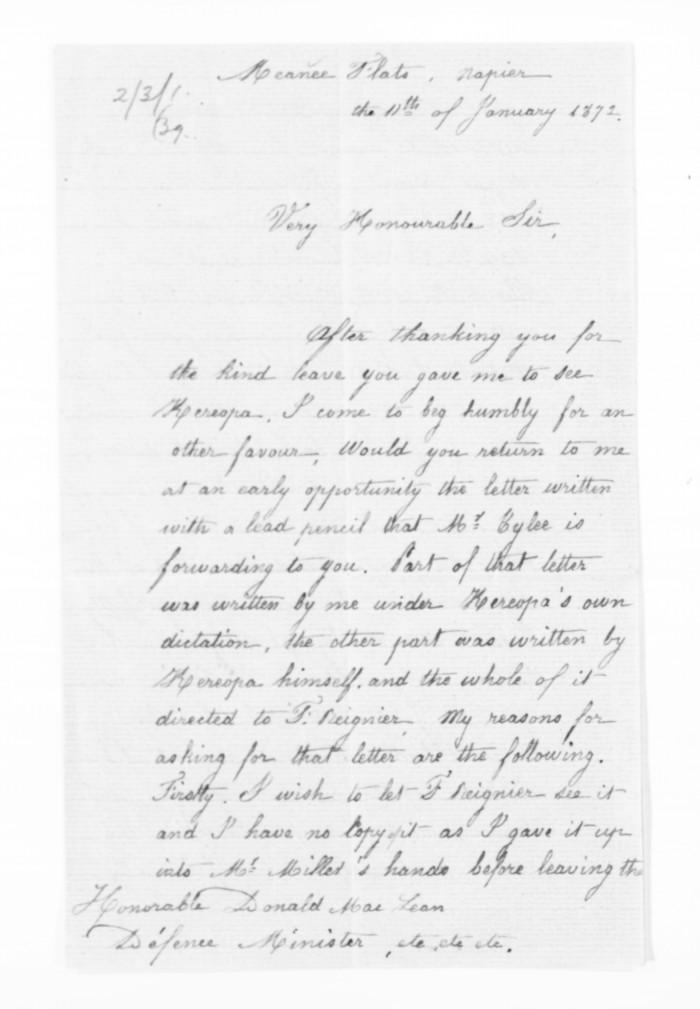 Meanee Flats, Napier
2/3/1.
(39.
the 11th of January 1872.
Very Honourable Sir,
After thanking you for
the kind leave you gave me to see
Kereopa, I come to beg humbly for an
other favour, Would you return to me
at an early opportunity the letter written
with a lead pencil that Mr. Tylee is
forwarding to you. Part of that letter
was written by me under Kereopa's own
dictation, the other part was written by
Kereopa himself, and the whole of it
directed to F. Reignier. My reasons for
asking for that letter are the following.
Firstly. I wish to let F Reignier see it
and I have no Copy of it as I gave it up
into Mr. Miller's hands before leaving the
Honorable Donald Mac Lean
Défence Minister, etc. etc etc.